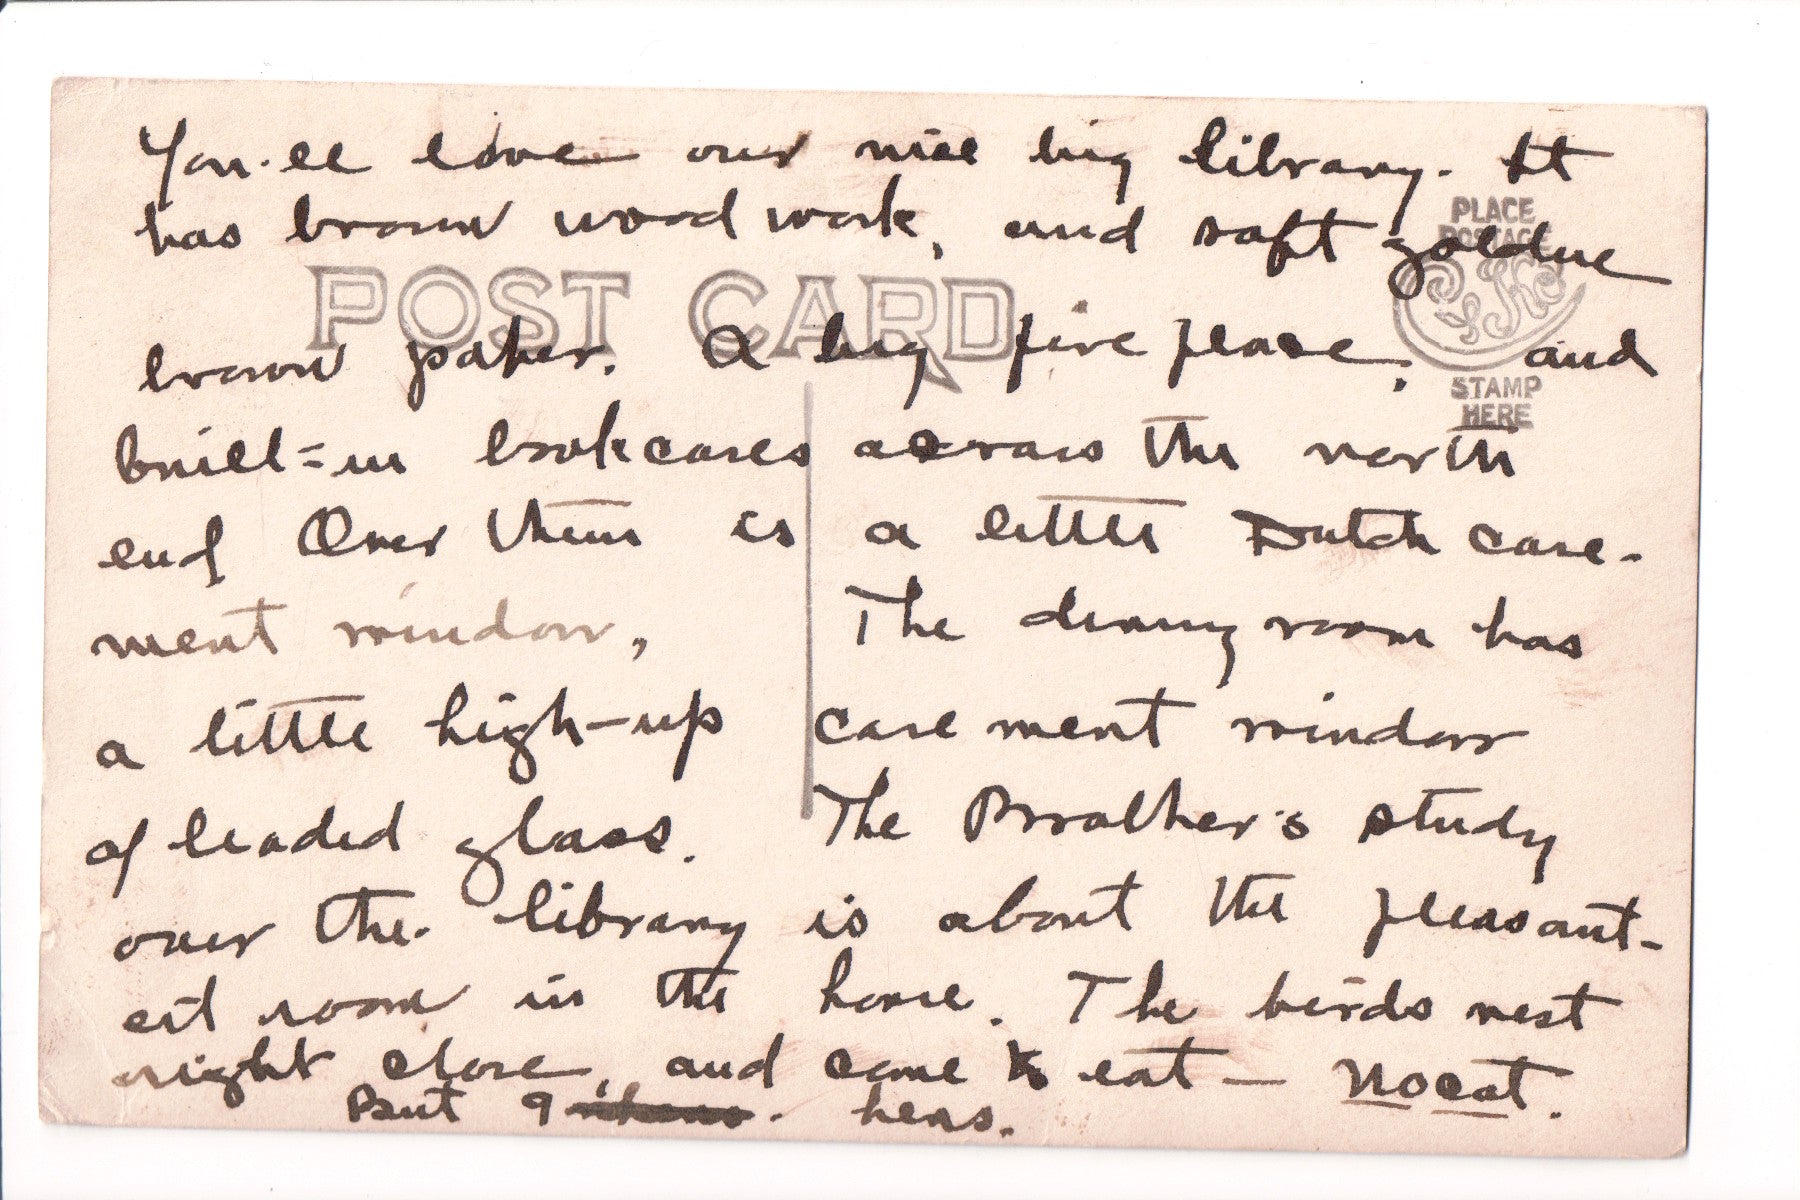 You'll love our nice big library. It
has brown wood work, and soft golden
PLACE
POSTAGE
POST CARD
brown paper. A big fire place, and
STAMP
HERE
built=in bookcases across the north
end Over them is a little Dutch case-
ment window, The dining room has
a little high-up casement window
of leaded glass. The Brother's study
over the library is about the pleasant-
est room in the house. The birds nest
right close, and come to eat — no cat.
But 9 hens.